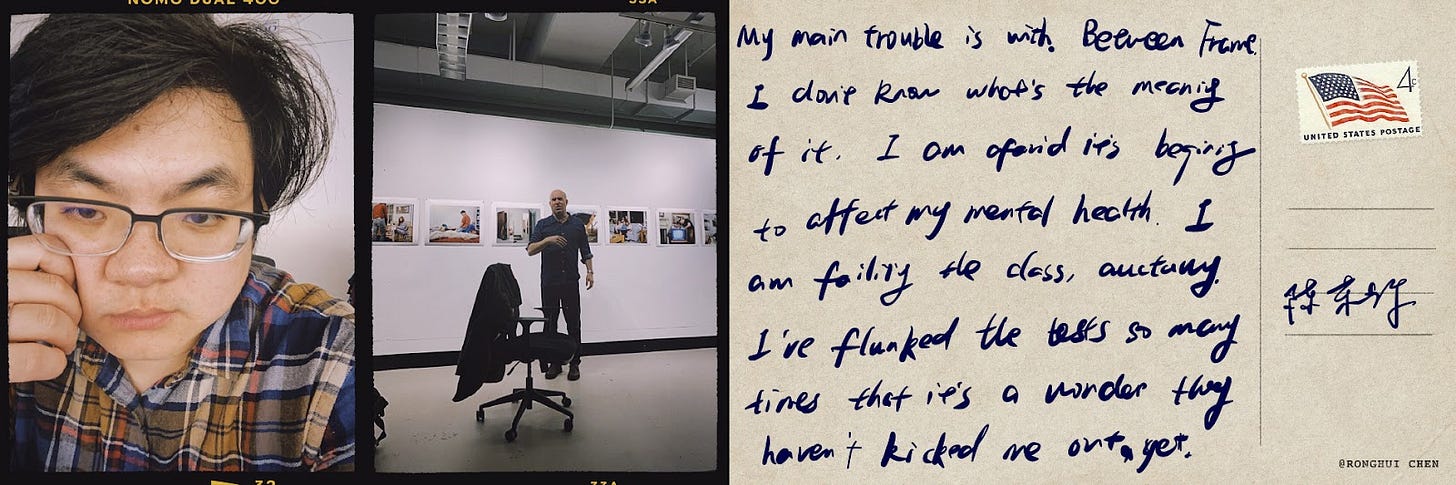 NOMO DUAL 400
33A
My main trouble is with. Between Frame.
I don't know what's the meaning
of it. I am afraid it's begining
to affect my mental health. I
am failing the class, auctually.
I've flunked the tests so many
times that it's a wonder they
haven't kicked me out, yet.
4c
UNITED STATES POSTAGE
陈荣辉
@RONGHUI CHEN
32
33A